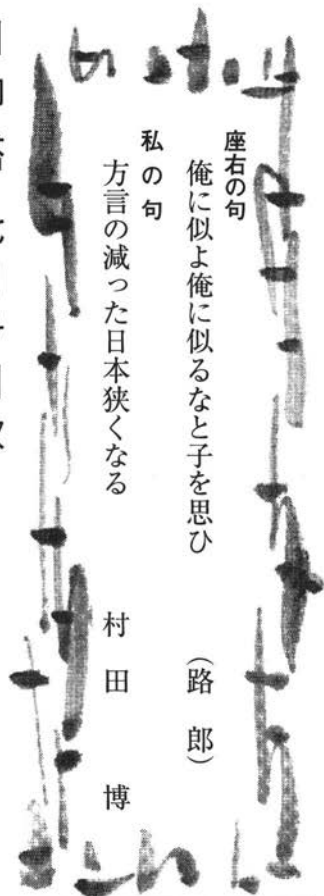 座右の句
俺に似よ俺に似るなと子を思ひ （路郎）
私の句
方言の減った日本狭くなる 村田 博